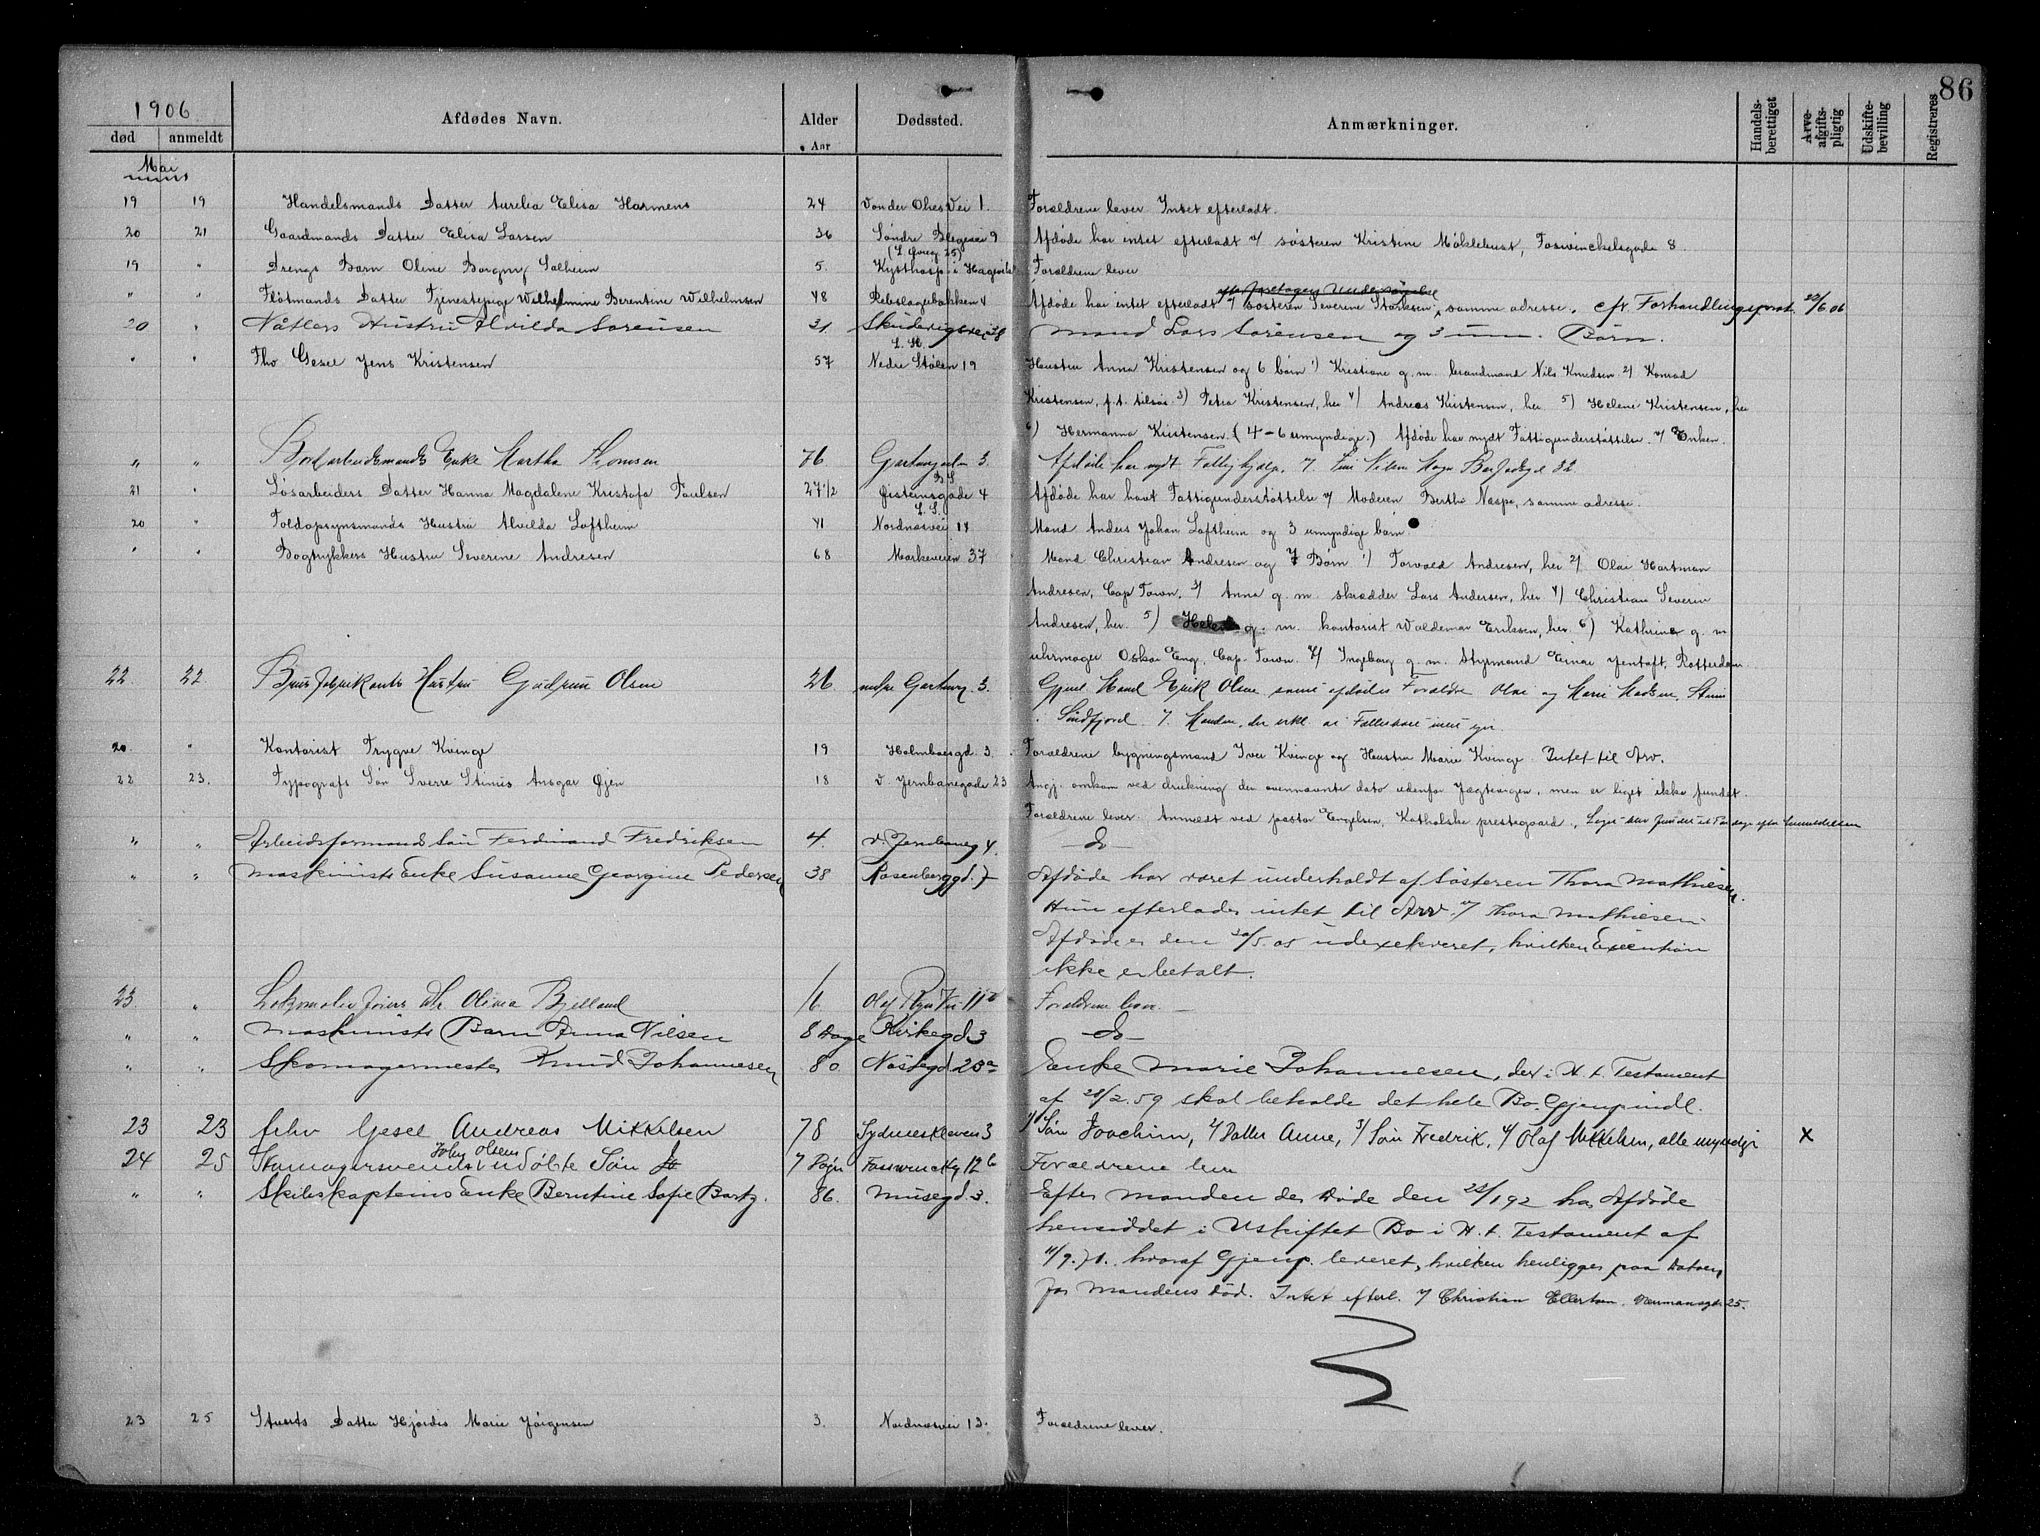 86
1906
død anmeldt Afdødes Navn. Alder Aar Dødssted. Anmærkninger. Handels-berettiget Arve-afgifts-pligtig Udskifte-bevilling Registreres
Mai
19 19 Handelsmands Datter Aurelia Elisa Harmens 24 Von der Ohes Vei 1. Forældrene lever Intet efterladt.
20 21 Gaardmands Datter Elisa Larsen 36 Søndre Blegevei 9 Afdøde har intet efterladt v/ søsteren Kristine Møklebust, Foswinckelsgade 8
19 " Drengs Barn Oline Borgny Solheim 5. Kysthosp. i Hagevik Forældrene lever
" " Flotmands Datter Tjenestepige Wilhelmine Berentine Wilhelmsen 48 Rebslagerbakken 4 Afdøde har intet efterladt v/ søsteren Severine Storksen, samme adresse. cfr Forhandlingsprot 22/6 06
20 " Nåtlers Hustru Alvilda Sørensen 31 Skudevigsvei 38 Mand Lars Sørensen og 3 um. Børn.
" " Fhv Gesel Jens Kristensen 57 Nedre Stølen 19 Hustru Anna Kristensen og 6 børn 1) Kristiane g. m. brandmand Nils Knudsen 2) Konrad
Kristensen, f. t. tilsøs 3) Petra Kristensen, her 4) Andreas Kristensen, her 5) Helene Kristensen, her
6) Hermanna Kristensen. (4-6 umyndige.) Afdøde har nydt Fattigunderstøttelse v/ Enken.
" " Bjordarbeidsmands Enke Martha Thomsen 76 3. Afdøde har nydt Fattighjælp. 32
21 " Løsarbeiders Datter Hanna Magdalene Kristofa Paulsen 27 1/2 Øisteinsgade 4 Afdøde har havt Fattigunderstøttelse v/ Moderen Bertha Naspe, samme adresse.
20 " Toldopsynsmands Hustru Alvilda Loftheim 41 Nordnæsvei 14 Mand Anders Johan Loftheim og 3 umyndige børn
" " Bogtrykkers Hustru Severine Andresen 68 Markeveien 37 Mand Christian Andresen og 7 Børn 1) Torvald Andresen, her 2) Olai Hartman
Andresen, Cap Town, 3) Anna g. m. skrædder Lars Andersen, her 4) Christian Severin
Andresen, her. 5) Helene g. m. kontorist Waldemar Eriksen, her 6) Kathrine g. m
uhrmager Oskar Eng, Cap Town. 7) Ingeborg g. m. Styrmand Einar Jentoft, Rotterdam
22 22 Brusfabrikants Hustru Gudrun Olsen 26 nedre 3. Gjenl Mand Erik Olsen samt afdødes Forældre Olai og Marie Madsen,
Søndfjord. v/ Manden, der erkl. at Fælleseiet
20. " Kontorist Trygve Kvinge 19 Holmboesgd. 3. Forældrene bygningsmand Iver Kvinge og Hustru Marie Kvinge. Intet til Arv.
22 23. Typografs Søn Sverre Stinius Ansgar Gjen 18 v. Jernbanegade 23 Angj. omkom ved drukning den ovennævnte dato udenfor Jægtevigen, men er liget ikke fundet.
Forældrene lever. Anmeldt ved pastor Engelsen, Katholske prestegaard.
" " Arbeidsformands Søn Ferdinand Fredriksen 4. v. Jernbaneg 4. do
" " Maskinists Enke Susanne Georgine Pedersen 38 Rosenberggd. 7 Afdøde har været underholdt af Søsteren Thora Mathiesen.
Hun efterlader intet til Arv. v/ Thora Mathiesen.
Afdøde er den 20/5. 05 udexekveret, hvilken Execution
ikke er betalt.
23 " Olina Bjelland 1/6 Olaf Ryes Vei 11 Forældrene lever
" " Maskinists Barn Anna Nilsen 8 Dage Kirkegd. 3 do
" " Skomagermester Knud Johannesen 80 Nøstegd. 23a Enke Marie Johannesen, der i H. t. Testament
af 28/2. 59 skal beholde det hele Bo. Gjenpindl.
23 23 fhv Gesel Andreas Mikkelsen 78 Sydneskleven 3 1) Søn Joachim, 2) Datter Anne, 3) Søn Fredrik, 4) Olaf Mikkelsen, alle myndige x
24 25 Skomagersvend John Olsens udøbte Søn 7 Døgn 12 b Forældrene lever
" " Skibskapteins Enke Berntine Sofie Bartz. 86. Musegd. 3. Efter Manden der døde den 22/1 92 har Afdøde
hensiddet i Uskiftet Bo i H. t. Testament af
11/9. 71., hvoraf Gjenp. leveret, hvilken henligges paa Datoen
for Mandens Død. Intet efterl. v/ Christian Ellertsen. Neumansgd. 25.
23 25 Stuerts Datter Hjørdis Marie Jørgensen 3. Nordnæsvei 13. Forældrene lever.